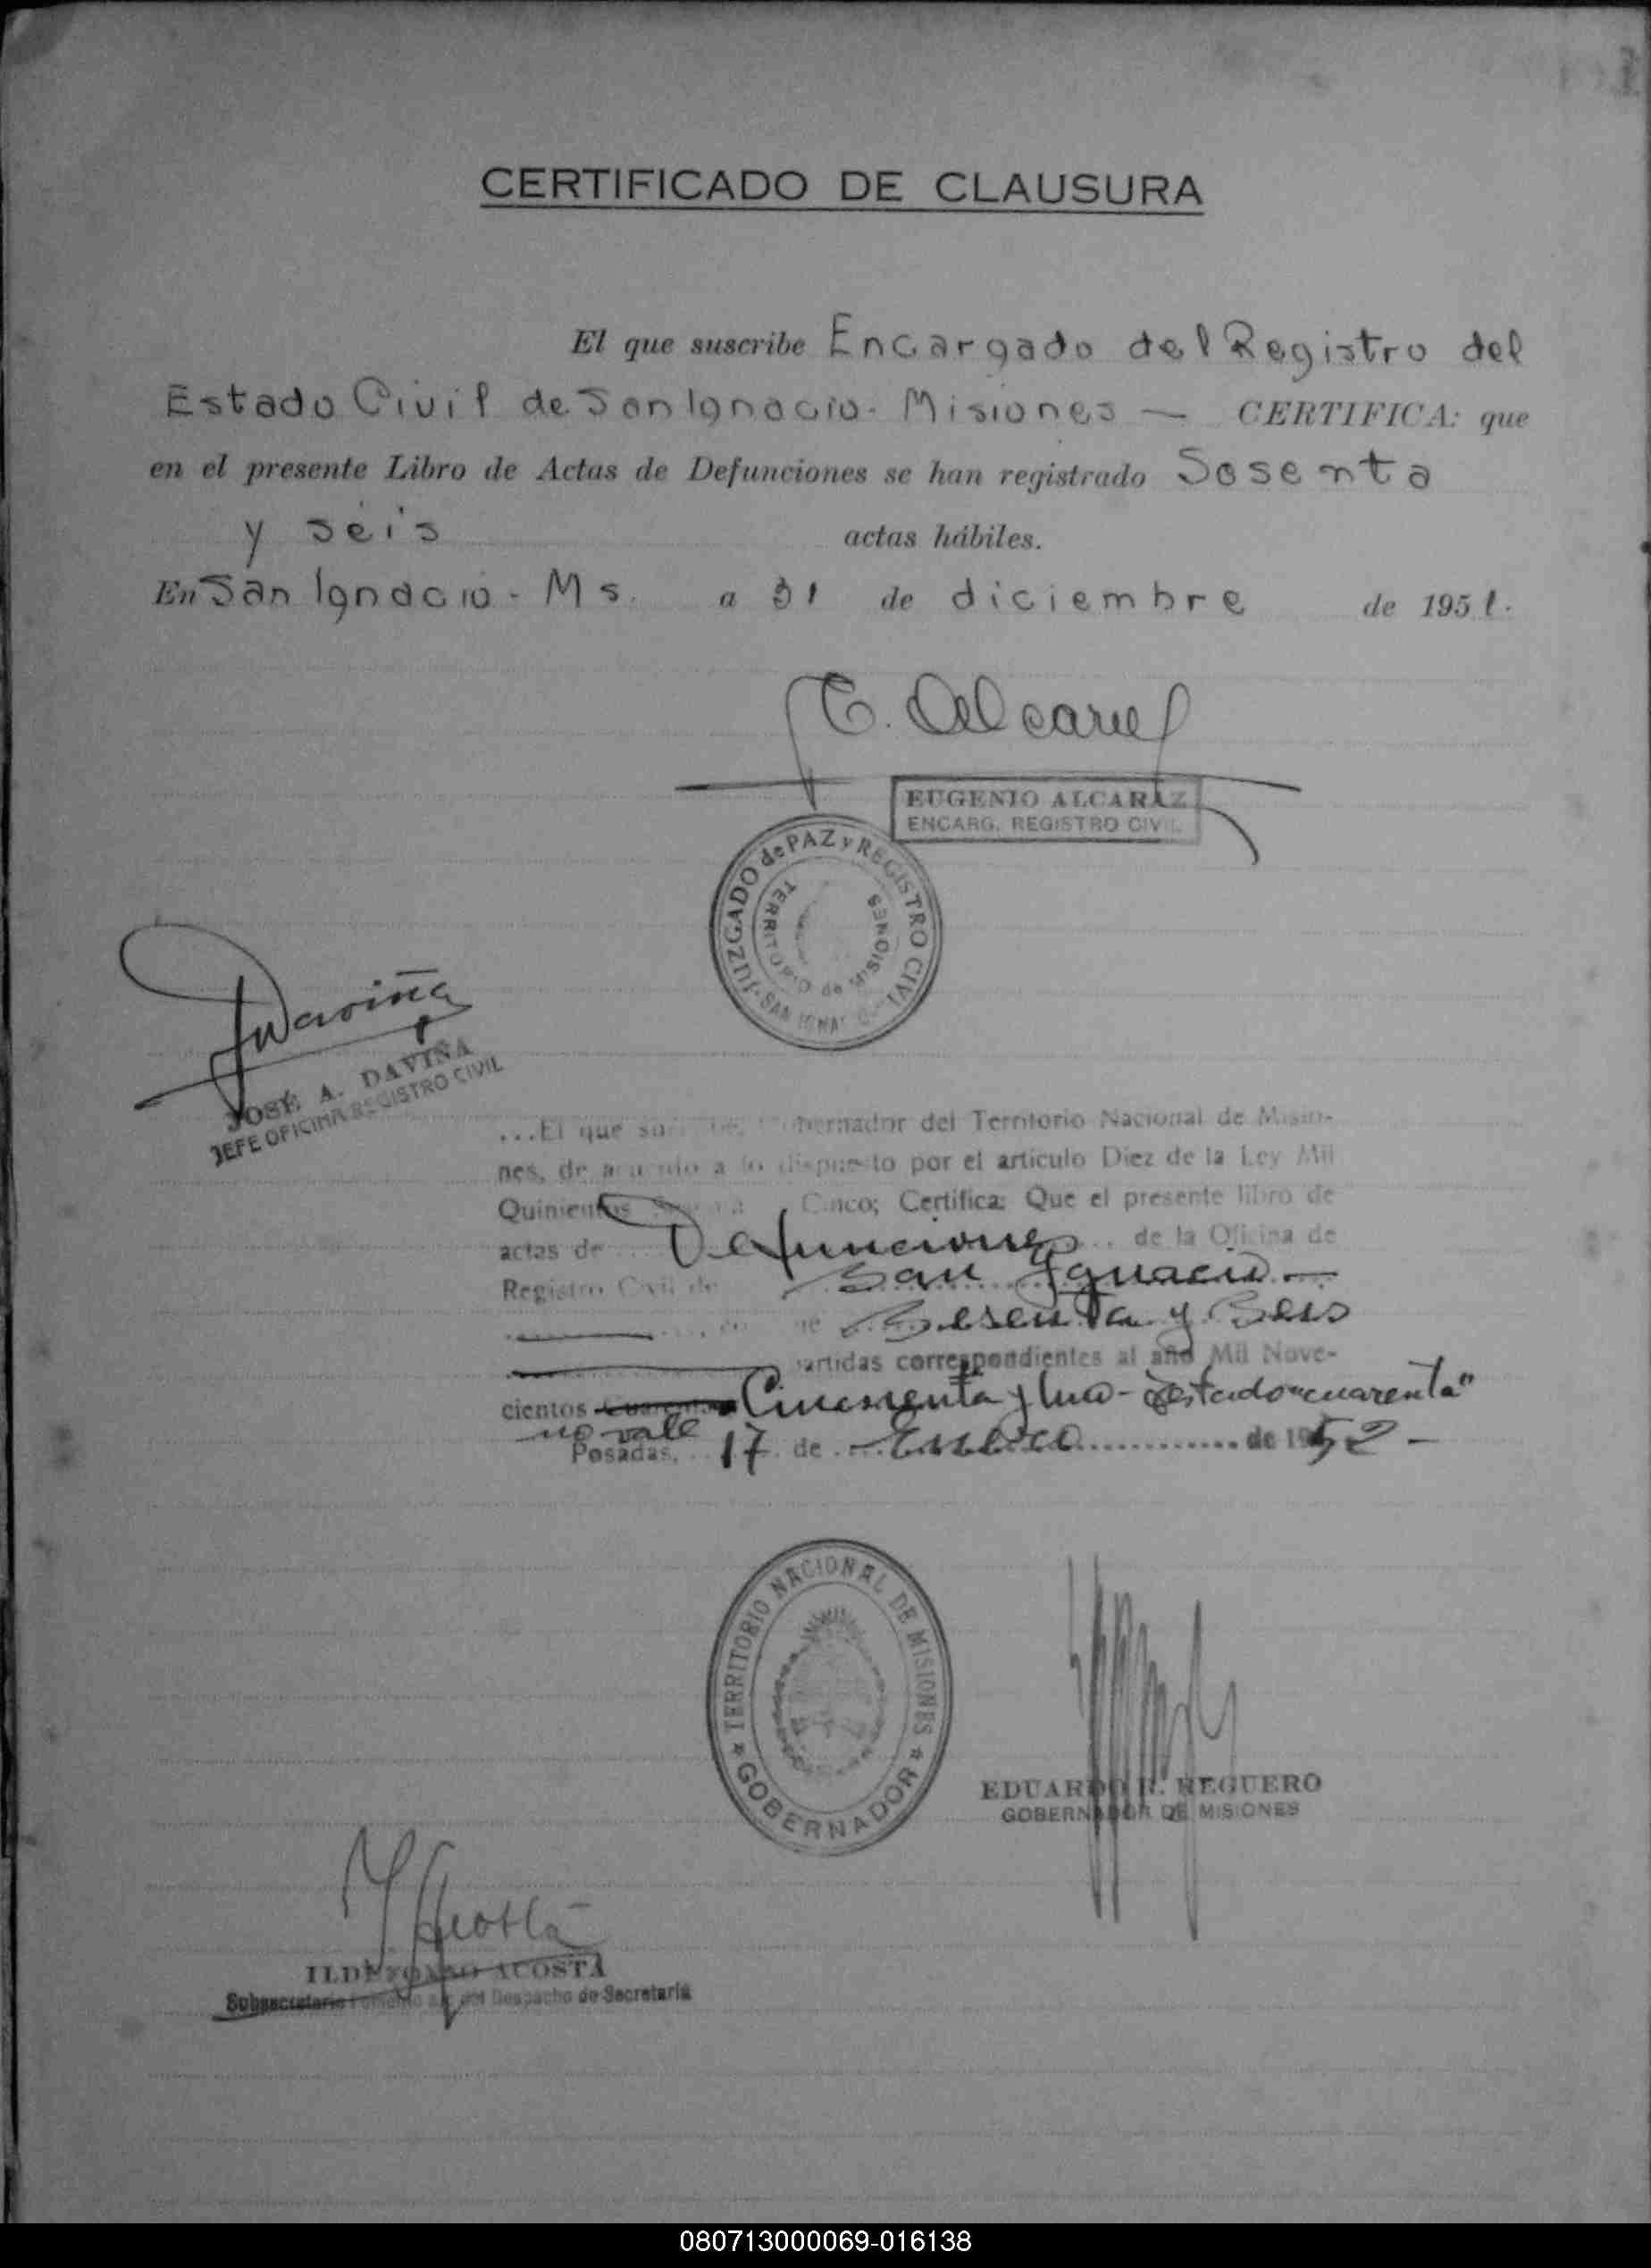 CERTIFICADO DE CLAUSURA
El que suscribe Encargado del Registro del
Estado Civil de San Ignacio - Misiones — CERTIFICA: que
en el presente Libro de Actas de Defunciones se han registrado Sesenta
y seis actas hábiles.
En San Ignacio - Ms. a 31 de diciembre de 1951.
E. Alcaraz
EUGENIO ALCARAZ
ENCARG. REGISTRO CIVIL
JUZGADO de PAZ y REGISTRO CIVIL
SAN IGNACIO
TERRITORIO de MISIONES
JDaviña
JOSÉ A. DAVIÑA
JEFE OFICINA REGISTRO CIVIL
...El que suscribe, Gobernador del Territorio Nacional de Misio-
nes, de acuerdo a lo dispuesto por el artículo Diez de la Ley Mil
Quinientos Cinco; Certifica: Que el presente libro de
actas de Defunciones de la Oficina de
Registro Civil de San Ignacio —
Sesenta y Seis
partidas correspondientes al año Mil Nove-
cientos Cuarenta Cincuenta y Uno - Testado "cuarenta"
no vale
Posadas, 17 de Enero de 1952 -
TERRITORIO NACIONAL DE MISIONES
GOBERNADOR
EDUARDO REGUERO
GOBERNADOR DE MISIONES
IAcosta
ILDEFONSO ACOSTA
Subsecretario Despacho de Secretaría
080713000069-016138